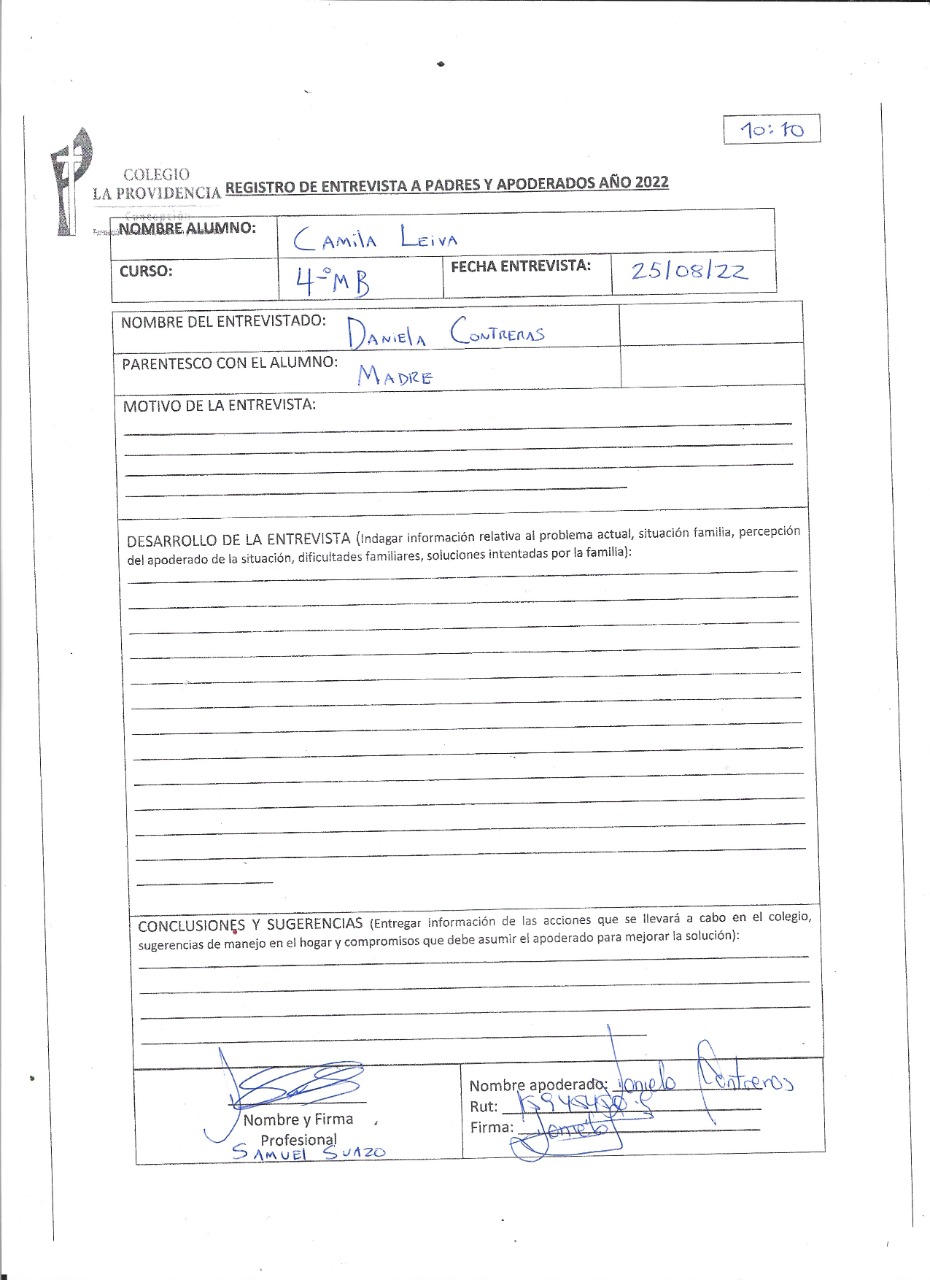 10:10
COLEGIO
LA PROVIDENCIA
Concepción
REGISTRO DE ENTREVISTA A PADRES Y APODERADOS AÑO 2022
NOMBRE ALUMNO: CAMILA LEIVA
CURSO: 4°MB FECHA ENTREVISTA: 25/08/22
NOMBRE DEL ENTREVISTADO: DANIELA CONTRERAS
PARENTESCO CON EL ALUMNO: MADRE
MOTIVO DE LA ENTREVISTA:
DESARROLLO DE LA ENTREVISTA (Indagar información relativa al problema actual, situación familia, percepción
del apoderado de la situación, dificultades familiares, soluciones intentadas por la familia):
CONCLUSIONES Y SUGERENCIAS (Entregar información de las acciones que se llevará a cabo en el colegio,
sugerencias de manejo en el hogar y compromisos que debe asumir el apoderado para mejorar la solución):
Nombre y Firma
Profesional
SAMUEL SUAZO
Nombre apoderado: Daniela Contreras
Rut:
Firma: